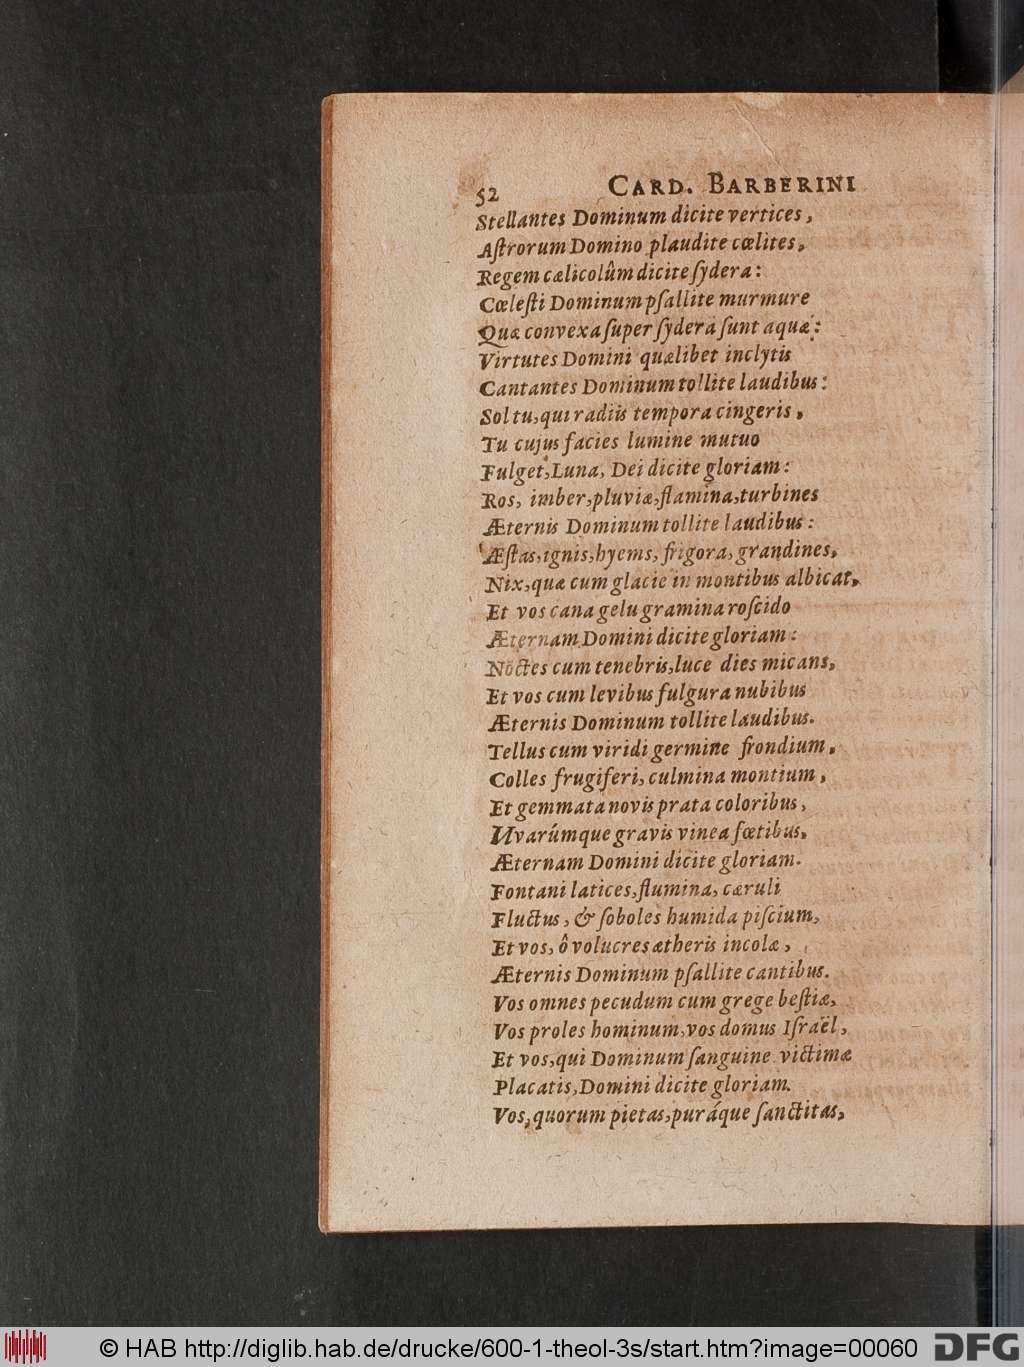 52 CARD. BARBERINI
Stellantes Dominum dicite vertices,
Aſtrorum Domino plaudite cœlites,
Regem cælicolûm dicite ſydera:
Cœleſti Dominum pſallite murmure
Quæ convexa ſuper ſydera ſunt aquæ:
Virtutes Domini quælibet inclytis
Cantantes Dominum tollite laudibus:
Sol tu, qui radiis tempora cingeris,
Tu cujus facies lumine mutuo
Fulget, Luna, Dei dicite gloriam:
Ros, imber, pluviæ, flamina, turbines
Æternis Dominum tollite laudibus:
Æſtas, ignis, hyems, frigora, grandines,
Nix, quæ cum glacie in montibus albicat,
Et vos cana gelu gramina roſcido
Æternam Domini dicite gloriam:
Noctes cum tenebris, luce dies micans,
Et vos cum levibus fulgura nubibus
Æternis Dominum tollite laudibus.
Tellus cum viridi germine frondium,
Colles frugiferi, culmina montium,
Et gemmata novis prata coloribus,
Uvarúmque gravis vinea fœtibus,
Æternam Domini dicite gloriam.
Fontani latices, flumina, cæruli
Fluctus, & ſoboles humida piſcium,
Et vos, ô volucres ætheris incolæ,
Æternis Dominum pſallite cantibus.
Vos omnes pecudum cum grege beſtiæ,
Vos proles hominum, vos domus Iſraël,
Et vos, qui Dominum ſanguine victimæ
Placatis, Domini dicite gloriam.
Vos, quorum pietas, puráque ſanctitas,
© HAB http://diglib.hab.de/drucke/600-1-theol-3s/start.htm?image=00060 DFG